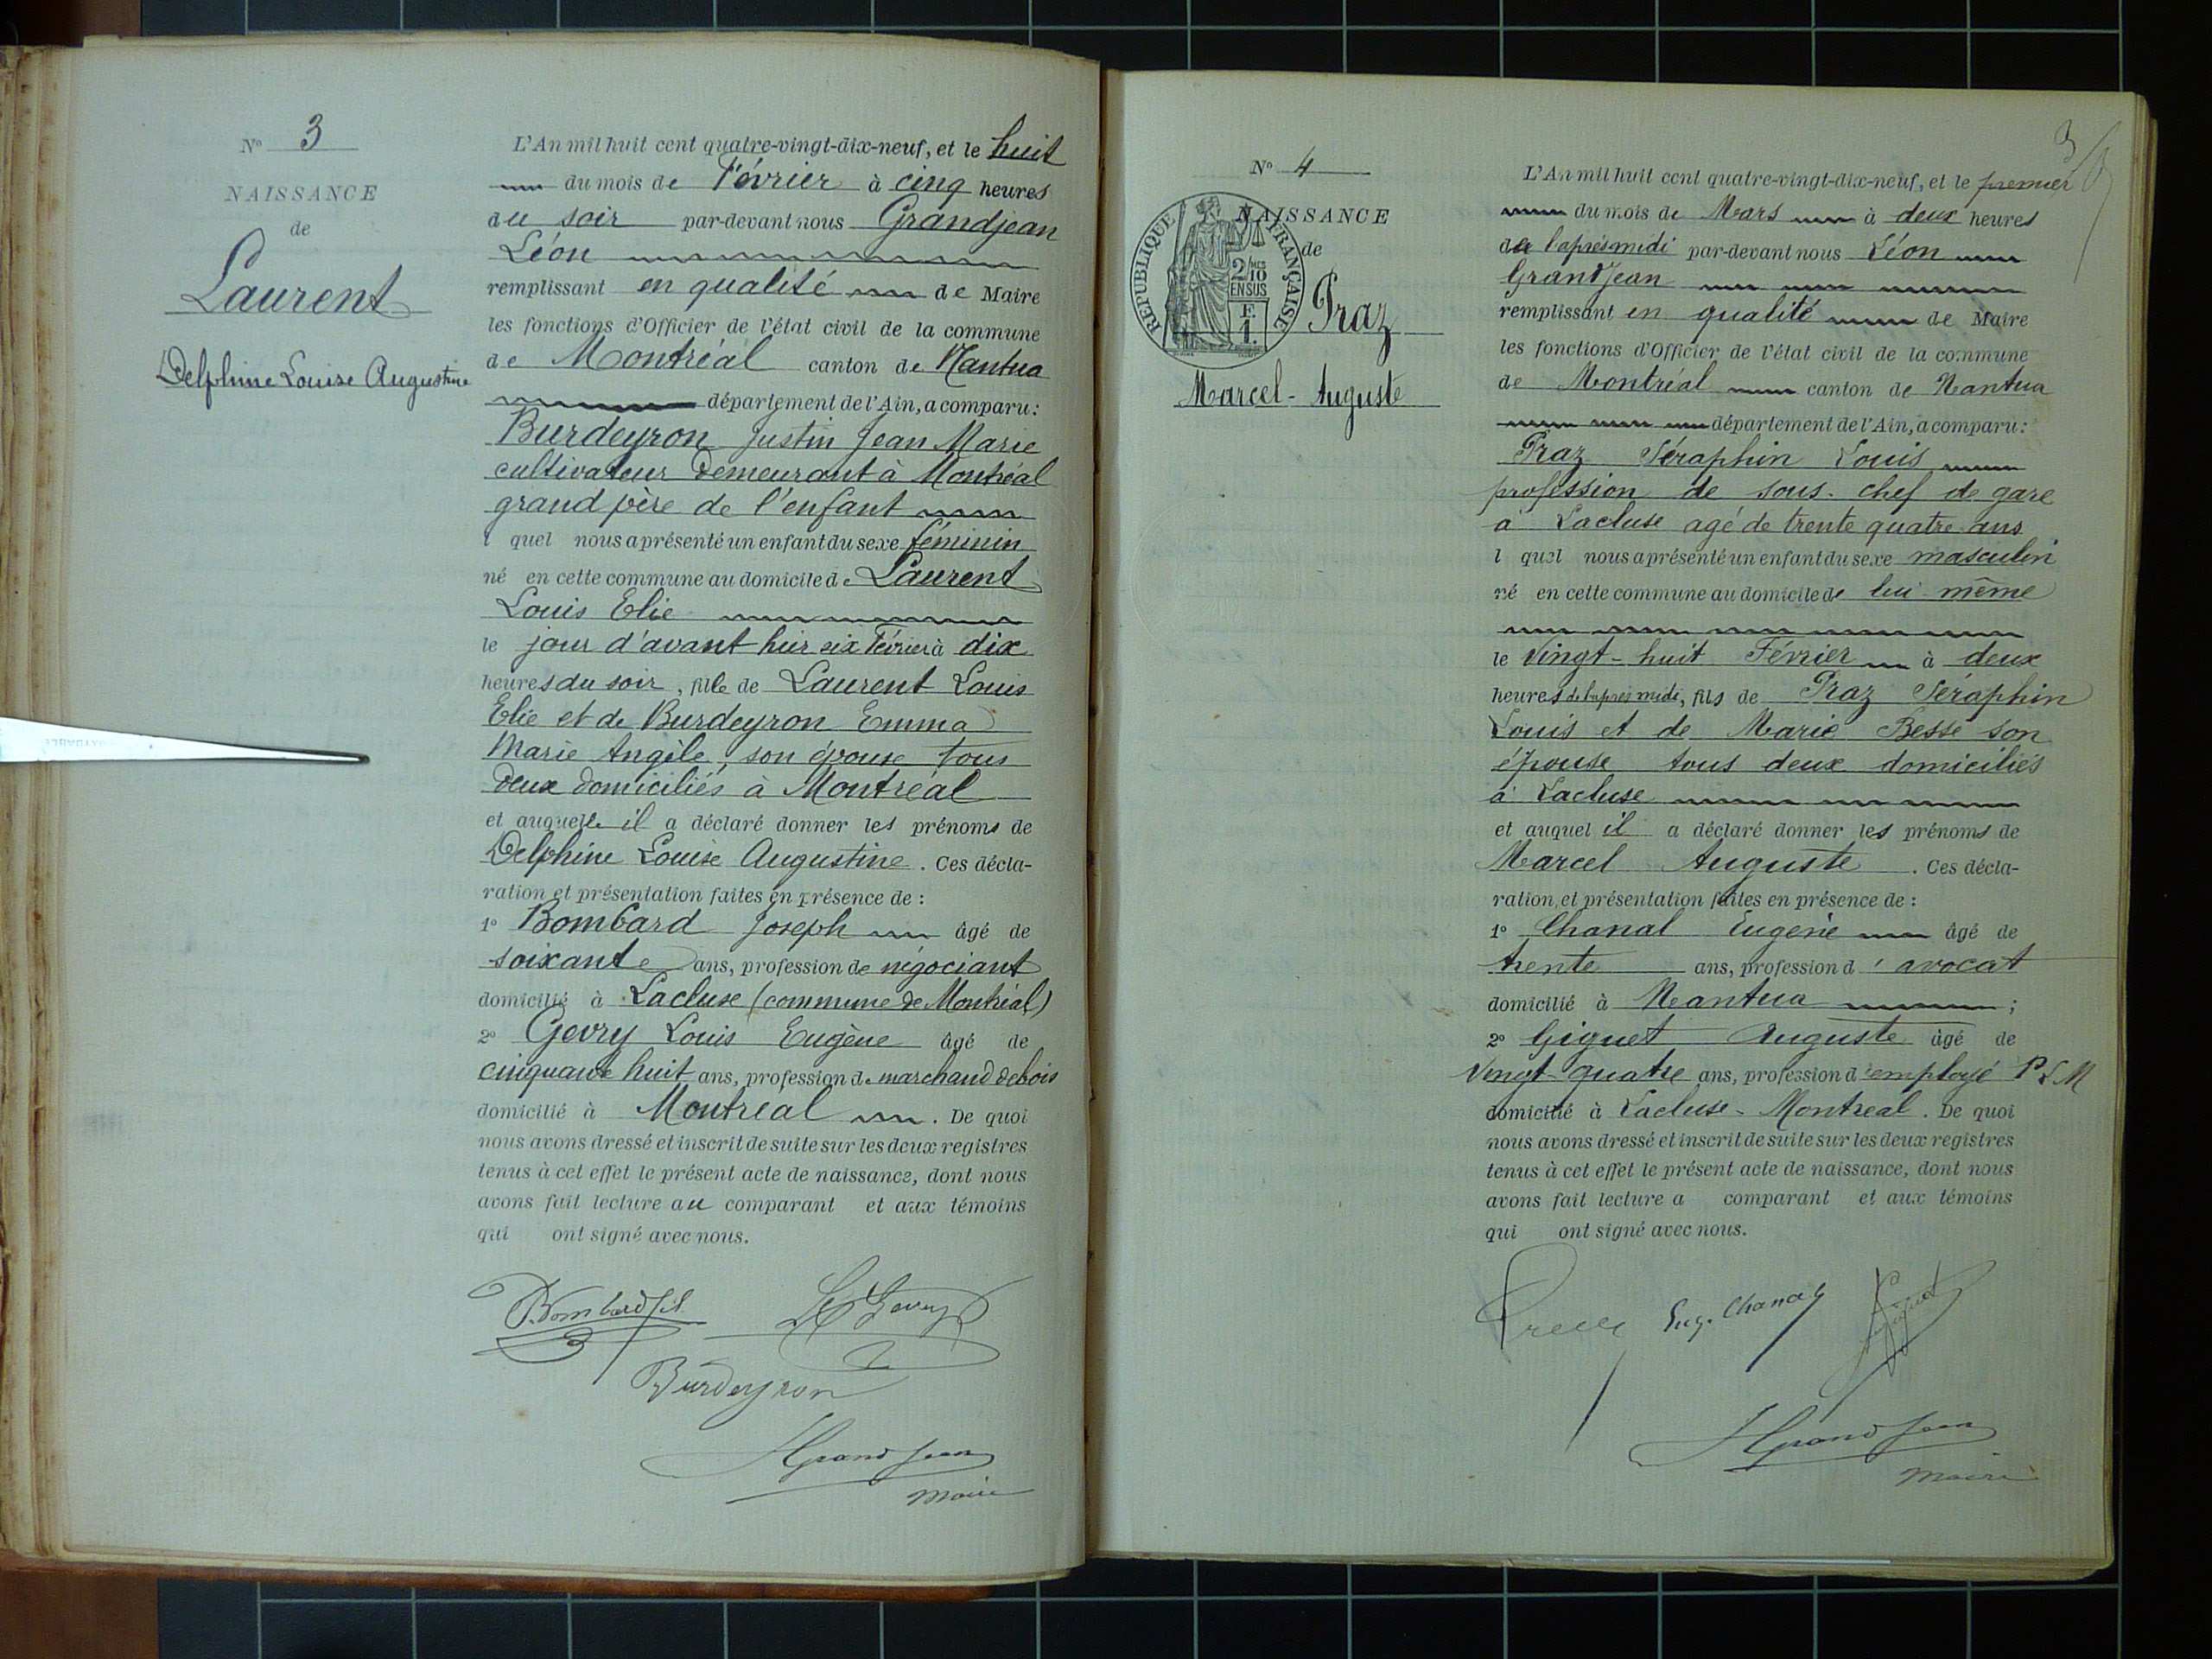 N° 3
NAISSANCE
de
Laurent
Delphine Louise Augustine
L'An mil huit cent quatre-vingt-dix-neuf, et le huit
du mois de Février à cinq heures
du soir par-devant nous Grandjean
Léon
remplissant en qualité de Maire
les fonctions d'Officier de l'état civil de la commune
de Montréal canton de Nantua
département de l'Ain, a comparu :
Burdeyron Justin Jean Marie
cultivateur demeurant à Montréal
grand père de l'enfant
l quel nous a présenté un enfant du sexe féminin
né en cette commune au domicile de Laurent
Louis Elie
le jour d'avant hier six Février à dix
heures du soir, fille de Laurent Louis
Elie et de Burdeyron Emma
Marie Angèle, son épouse tous
deux domiciliés à Montréal
et auquelle il a déclaré donner les prénoms de
Delphine Louise Augustine. Ces décla-
ration et présentation faites en présence de :
1° Bombard Joseph âgé de
soixante ans, profession de négociant
domicilié à Lacluse (commune de Montréal)
2° Gevry Louis Eugène âgé de
cinquante huit ans, profession de marchand de bois
domicilié à Montréal. De quoi
nous avons dressé et inscrit de suite sur les deux registres
tenus à cet effet le présent acte de naissance, dont nous
avons fait lecture au comparant et aux témoins
qui ont signé avec nous.
Bombard fil
Gevry
Burdeyron
Grandjean
Maire
3
N° 4
NAISSANCE
de
REPUBLIQUE FRANÇAISE
2/10 MES
EN SUS
F.
1.
Praz
Marcel-Auguste
L'An mil huit cent quatre-vingt-dix-neuf, et le premier
du mois de Mars à deux heures
de l'après midi par-devant nous Léon
Grandjean
remplissant en qualité de Maire
les fonctions d'Officier de l'état civil de la commune
de Montréal canton de Nantua
département de l'Ain, a comparu :
Praz Séraphin Louis
profession de sous-chef de gare
à Lacluse agé de trente quatre ans
l quel nous a présenté un enfant du sexe masculin
né en cette commune au domicile de lui même
le Vingt-huit Février à deux
heures de l'après midi, fils de Praz Séraphin
Louis et de Marie Besse son
épouse tous deux domiciliés
à Lacluse
et auquel il a déclaré donner les prénoms de
Marcel Auguste. Ces décla-
ration et présentation faites en présence de :
1° Chanal Eugène âgé de
trente ans, profession d'avocat
domicilié à Nantua ;
2° Giguet Auguste âgé de
Vingt-quatre ans, profession d'employé P L M
domicilié à Lacluse-Montréal. De quoi
nous avons dressé et inscrit de suite sur les deux registres
tenus à cet effet le présent acte de naissance, dont nous
avons fait lecture a comparant et aux témoins
qui ont signé avec nous.
Eug. Chanal
Giguet
Grandjean
Maire